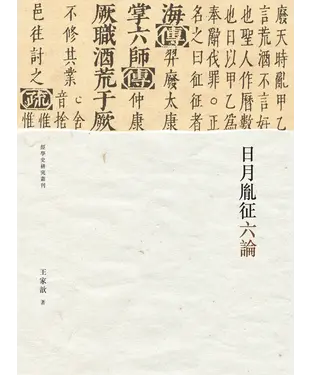 廢天時亂甲乙
言荒酒不好
也聖人作曆數
也曰以甲乙爲
奉辭伐罪○正
名之曰征征者
海傳羿廢太康
掌六師傳仲康
厥職酒荒于厥
不修其業 音捨
邑往討之疏惟
日月胤征六論
經學史研究叢刊
王家歆 著